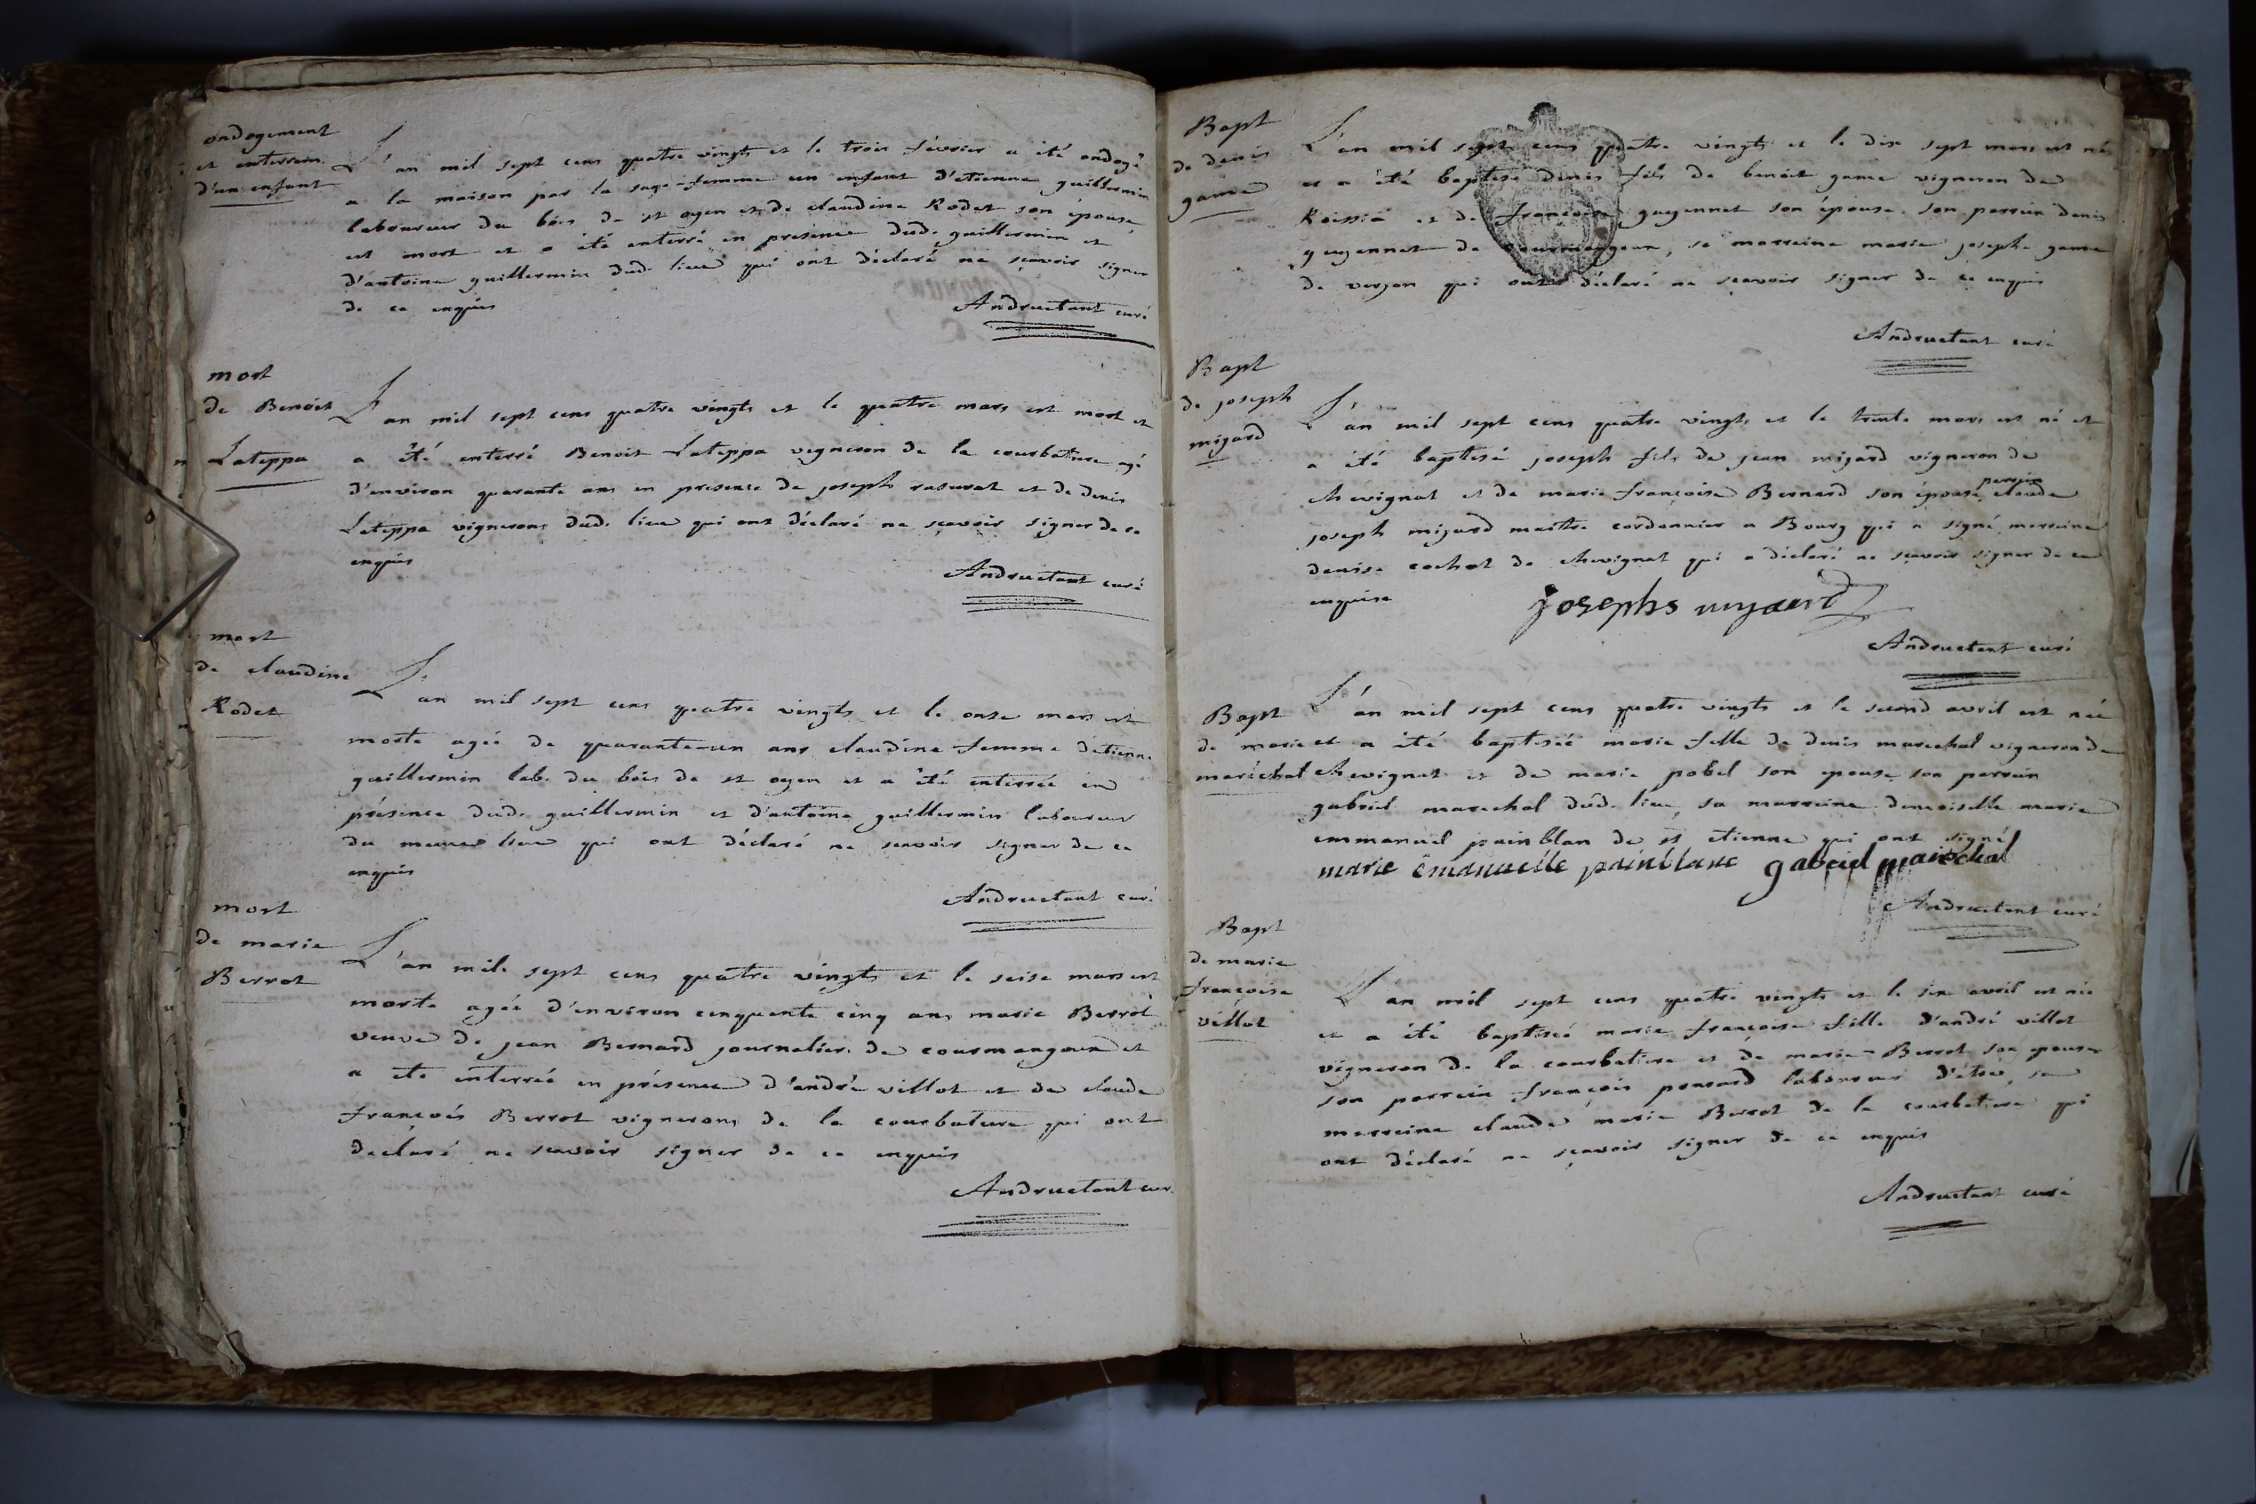 ondogement
et enterrem.
d'un enfant
L'an mil sept cens quatre vingts et le trois février a été ondogé
a la maison par la sage-femme un enfant d'etienne guillermin
laboureur du bois de st oyen et de claudine Rodet son épouse,
est mort et a été enterré en presence dud. guillermin et
d'antoine guillermin dud. lieu qui ont déclaré ne sçavoir signer
de ce enquis
Andructant curé
mort
de Benoit
Lateppa
L'an mil sept cens quatre vingts et le quatre mars est mort et
a été enterré Benoit Lateppa vigneron de la courbature agé
d'environ quarante ans en presence de joseph rasurat et de denis
Lateppa vignerons dud. lieu qui ont déclaré ne sçavoir signer de ce
enquis
Andructant curé
mort
de claudine
Rodet
L'an mil sept cens quatre vingts et le onze mars est
morte agée de quarante-un ans claudine femme d'etienne
guillermin lab. du bois de st oyen et a été enterrée en
présence dud. guillermin et d'antoine guillermin laboureur
du meme lieu qui ont déclaré ne scavoir signer de ce
enquis
Andructant curé
mort
de marie
Berrot
L'an mil sept cens quatre vingts et le seise mars est
morte agée d'environ cinquante cinq ans marie Berrot
veuve de jean Bernard journalier de courmangoux et
a ete enterrée en présence d'andré villot et de claude
françois Berrot vignerons de la courbature qui ont
declaré ne scavoir signer de ce enquis
Andructant cur.
Bapt
de denis
game
L'an mil sept cens quatre vingts et le dix sept mars est né
et a été baptisé denis fils de benoit game vigneron de
Roissia et de françoise guyennet son épouse. son parrein denis
guyennet de courmangoux, sa marreine marie josephe game
de verjon qui ont déclaré ne sçavoir signer de ce enquis
Andructant curé
Bapt
de joseph
mizard
L'an mil sept cens quatre vingts et le trente mars est né et
a été baptisé joseph fils de jean mizard vigneron de
chevignat et de marie françoise Bernard son épouse, parrein claude
joseph mizard maitre cordonnier a Bourg qui a signé, marreine
denise cochat de chevignat qui a déclaré ne sçavoir signer de ce
enquise
josephs myard
Andructant curé
Bapt
de marie
maréchal
L'an mil sept cens quatre vingts et le second avril est née
et a été baptisée marie fille de denis marechal vigneron de
chevignat et de marie pobel son epouse, son parrein
gabriel marechal dud. lieu, sa marreine demoiselle marie
emmanuel painblan de st etienne qui ont signé
marie emanuelle painblanc gabriel marechal
Andructant curé
Bapt
de marie
françoise
villot
L'an mil sept cens quatre vingts et le six avril est née
et a été baptisée marie françoise fille d'andré villot
vigneron de la courbature et de marie Berrot son epouse
son parrein françois ponsard laboureur sa
marreine claude marie Berrot de la courbature qui
ont déclaré ne sçavoir signer de ce enquis
Andructant curé